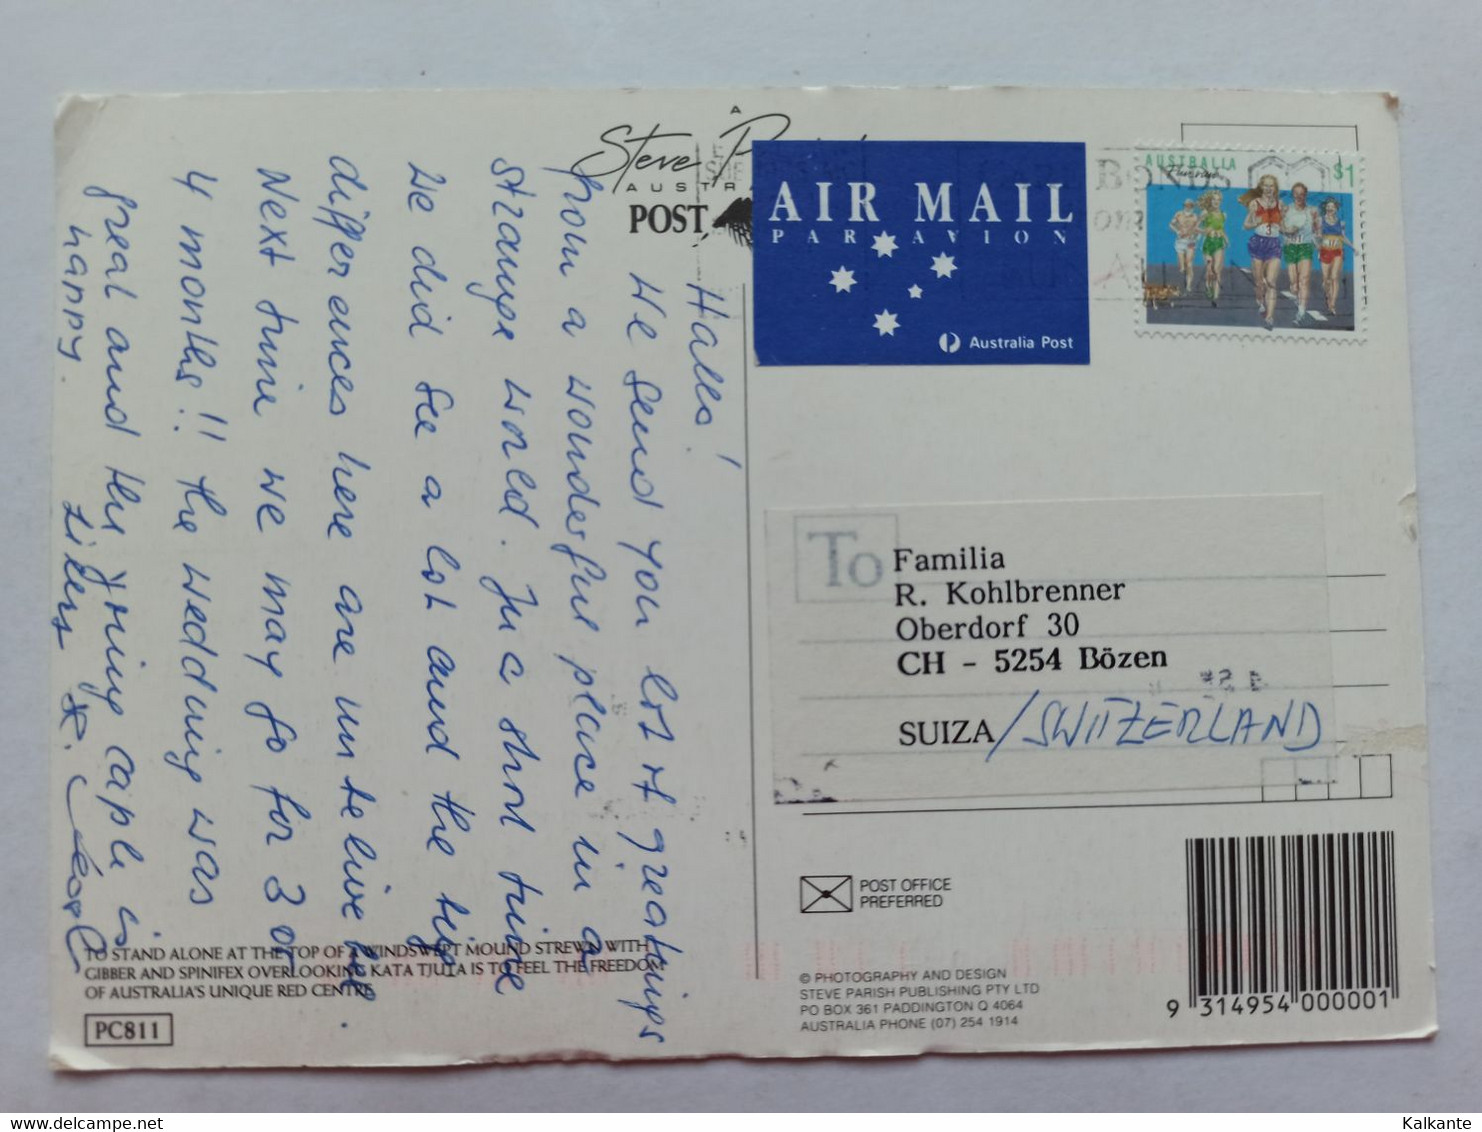 A
Steve P
AUSTRA
POST
AIR MAIL
PAR AVION
Australia Post
AUSTRALIA
Running
$1
BONDS
Hallo!
We send you lot of greatings
from a wonderful place in a
strange world. In a short time
We did see a lot and the
differences here are unbelive
Next time we may go for 3 or
4 months!! the wedding was
great and the young cople is
happy.
To
Familia
R. Kohlbrenner
Oberdorf 30
CH - 5254 Bözen
SUIZA / SWITZERLAND
POST OFFICE
PREFERRED
TO STAND ALONE AT THE TOP OF A WINDSWEPT MOUND STREWN WITH
GIBBER AND SPINIFEX OVERLOOKING KATA TJUTA IS TO FEEL THE FREEDOM
OF AUSTRALIA'S UNIQUE RED CENTRE.
PC811
© PHOTOGRAPHY AND DESIGN
STEVE PARISH PUBLISHING PTY LTD
PO BOX 361 PADDINGTON Q 4064
AUSTRALIA PHONE (07) 254 1914
9 314954 000001
Kalkante